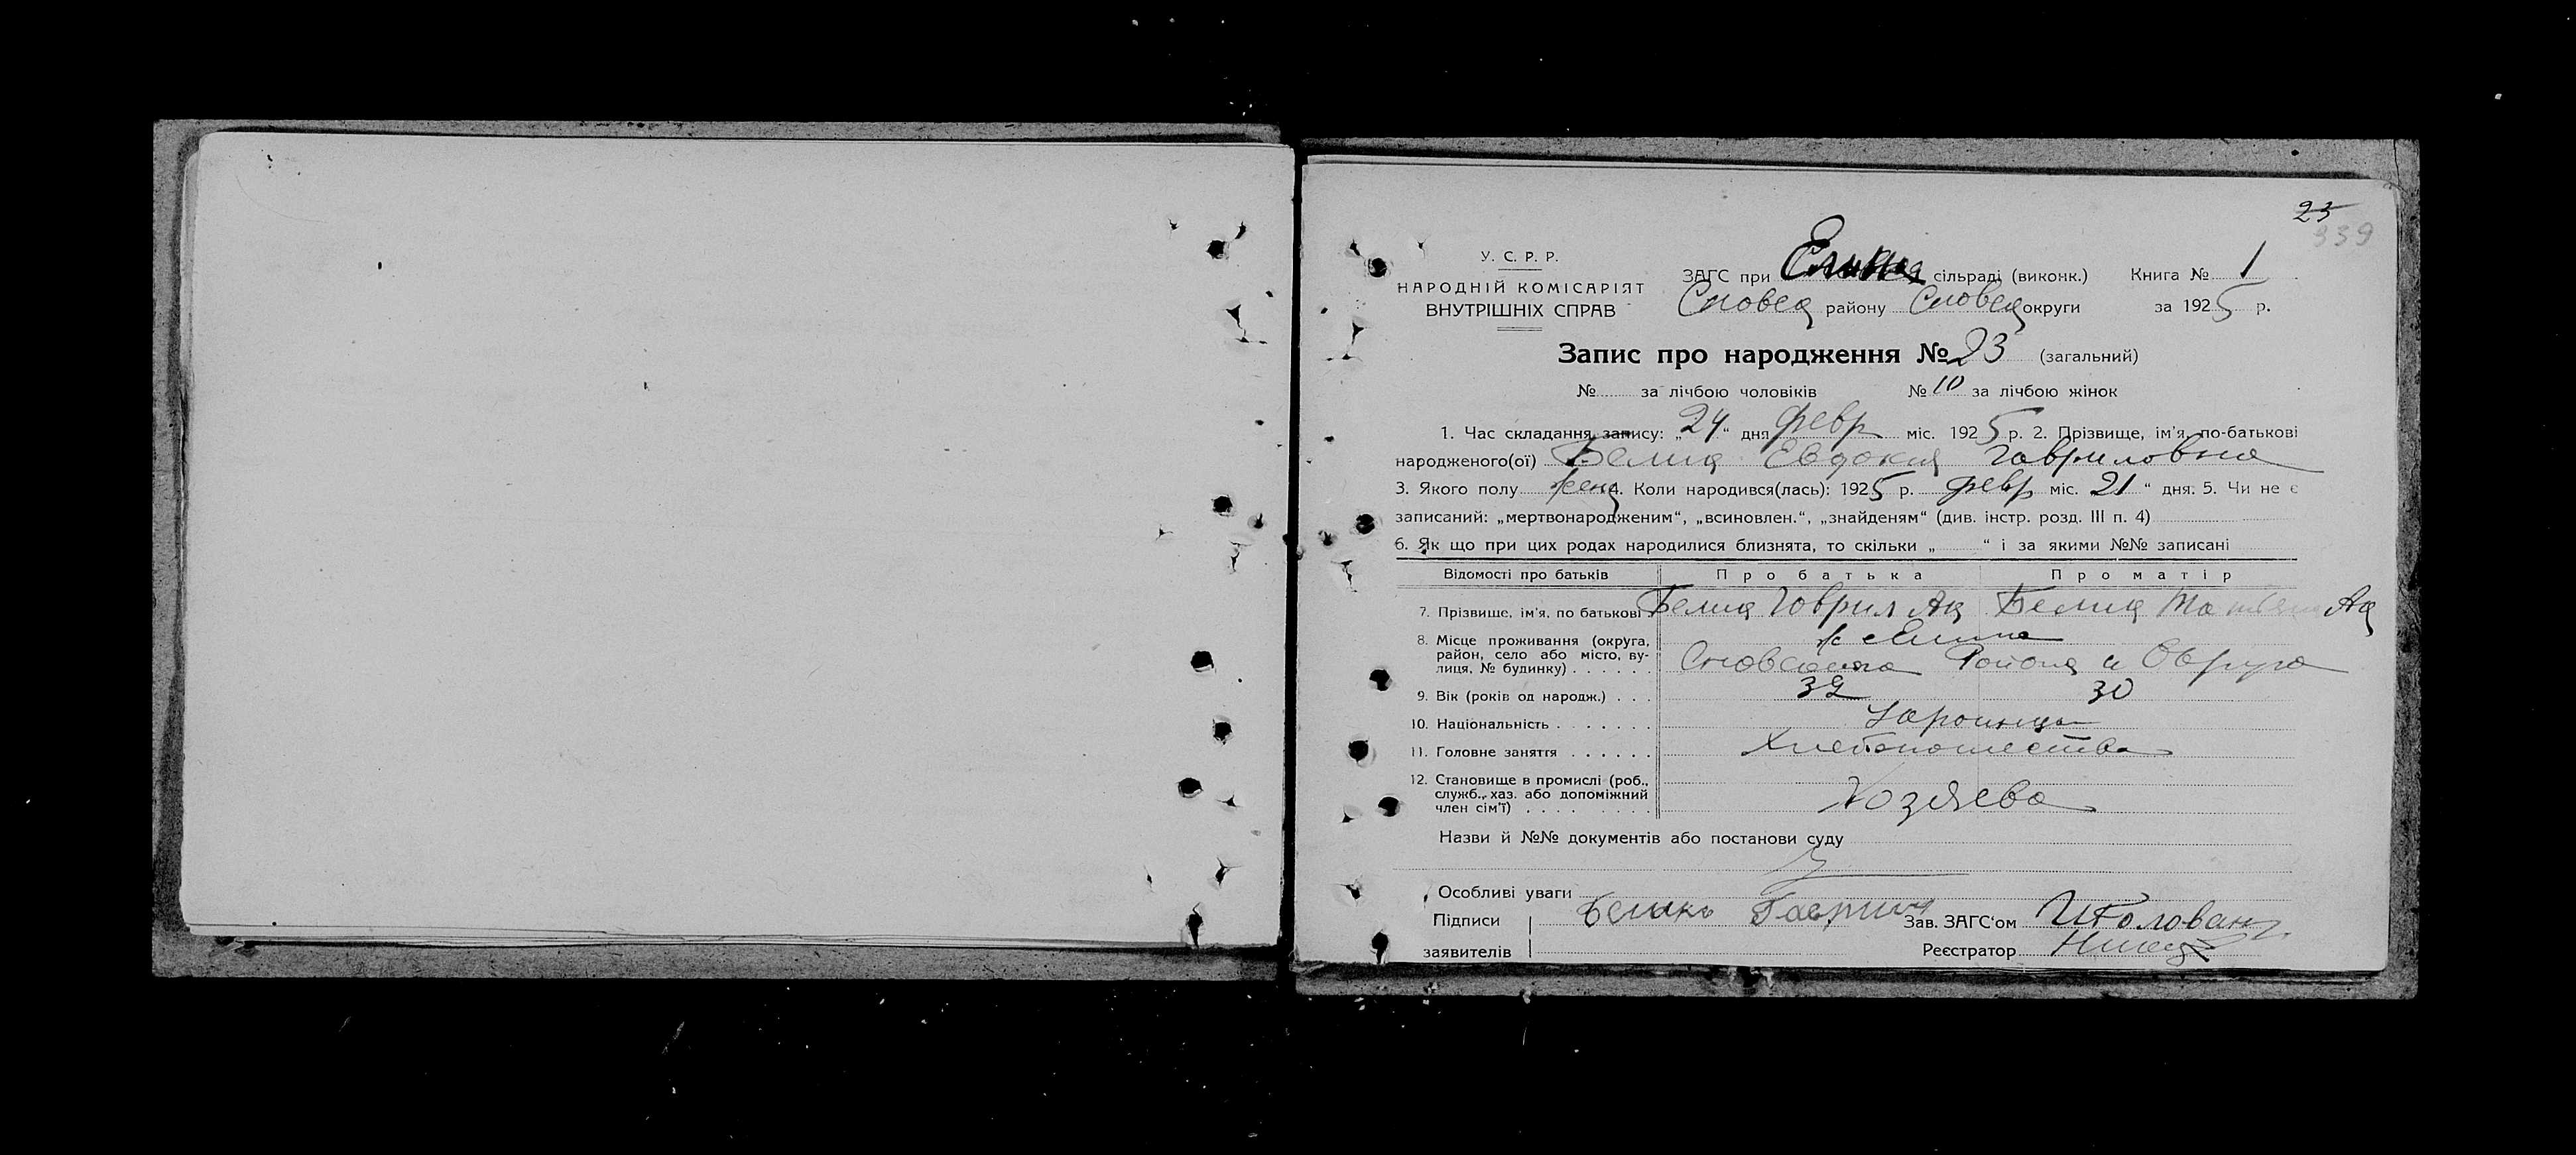 23
339
У. С. Р. Р.
НАРОДНІЙ КОМІСАРІЯТ
ВНУТРІШНІХ СПРАВ
ЗАГС при сільраді (виконк.) Книга № 1
Сновск району Сновск округи за 1925 р.
Запис про народження № 23 (загальний)
№ за лічбою чоловіків № 10 за лічбою жінок
1. Час складання запису: „24“ дня февр міс. 1925 р. 2. Прізвище, ім'я, по-батькові
народженого(ої) Белиц Евдокия Гавриловна
3. Якого полу жен 4. Коли народився(лась): 1925 р. февр міс. 21 “ дня. 5. Чи не є
записаний: „мертвонародженим“, „всиновлен.“, „знайденям“ (див. інстр. розд. III п. 4)
6. Як що при цих родах народилися близнята, то скільки „ “ і за якими №№ записані
Відомості про батьків Про батька Про матір
7. Прізвище, ім'я, по батькові Белиц Гаврил Белиц Татьяна
8. Місце проживання (округа, район, село або місто, вулиця, № будинку) Района и Округа
9. Вік (років од народж.) 32 30
10. Національність Украинцы
11. Головне заняття Хлебопашество
12. Становище в промислі (роб., служб., хаз. або допоміжний член сім'ї) Хозяева
Назви й №№ документів або постанови суду
Особливі уваги
Підписи Гаврил Зав. ЗАГС'ом
заявителів Реєстратор